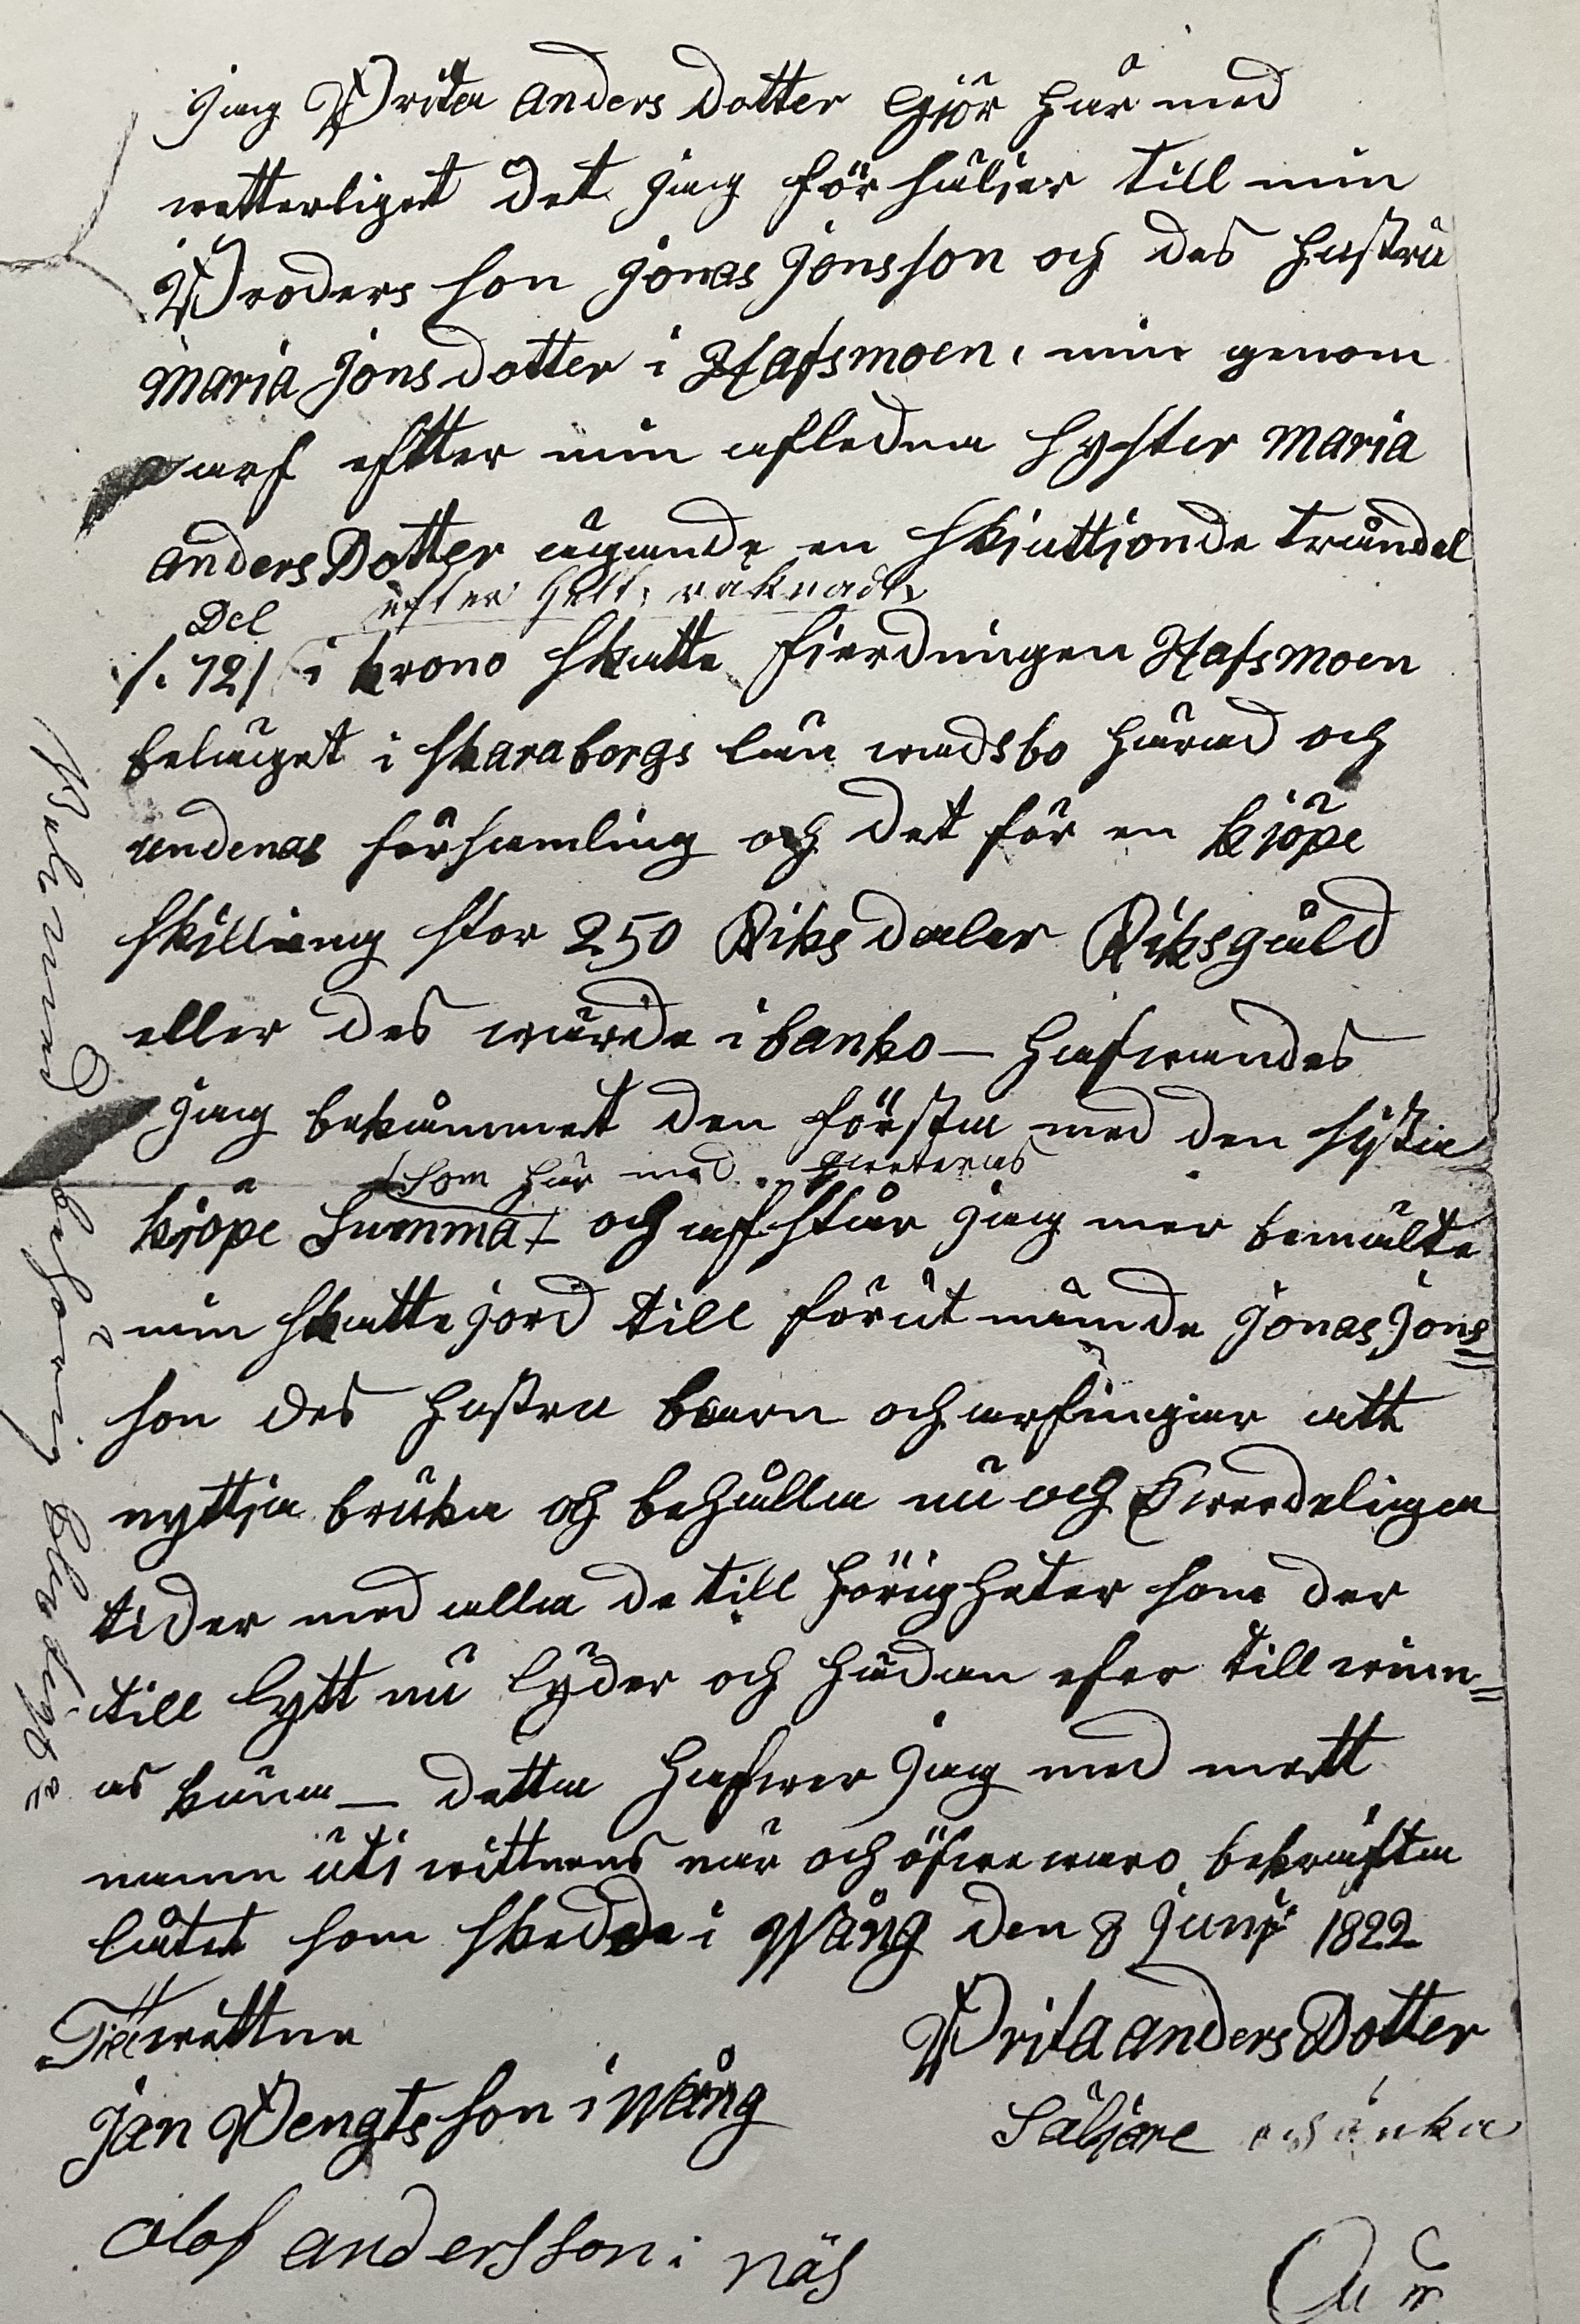 jag Brita anders dotter Gjör här med
wetterligt det jag för säljer till min
Broders son jonas jonsson och des hustru
Maria jonsdotter i Hafsmoen, min genom
arf eftter min afledna syster Maria
anders Dotter ägande en skiuttionde tråndel
Del efter helt räknadt
/. 72/ i krono skatte fierdningen Hafsmoen
beläget i skaraborgs län wadsbo härad och
undenas församling och det för en kjöpe
skilling stor 250 Riksdaler Riksgäld
eller des wärde i banko — hafwandes
jag bekåmmet den första med den sista
(som här med qwiteras
kjöpe Summa och afstår jag mer bemälte
min skatte jord till förut nämnde jonas Jons=
son des hustru barn och arfingiar att
nyttja bruka och behålla nu och Ewerdeliga
tider med alla de till hörigheter som der
till lytt nu lyder och hädan efer till winn=
as kann — detta hafwer jag med mett
namn uti wittnens när och öfwerwaro bekräfta
låtet som skedde i Wång den 8 Junij 1822
Brita anders Dotter
Säljare och änka
Till wittne
Jan Bengtsson i Wång
olof andersson i näs
behörig